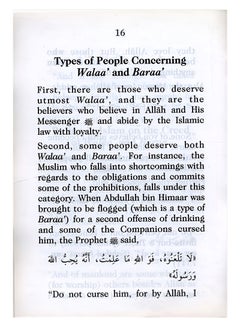 16
Types of People Concerning
Walaa' and Baraa'
First, there are those who deserve
utmost Walaa', and they are the
believers who believe in Allāh and His
Messenger ﷺ and abide by the Islamic
law with loyalty.
Second, some people deserve both
Walaa' and Baraa'. For instance, the
Muslim who falls into shortcomings with
regards to the obligations and commits
some of the prohibitions, falls under this
category. When Abdullah bin Himaar was
brought to be flogged (which is a type of
Baraa') for a second offense of drinking
and some of the Companions cursed
him, the Prophet ﷺ said,
«لَا تَلْعَنُوهُ، فَوَ اللهِ مَا عَلِمْتُ، أَنَّهُ يُحِبُّ اللهَ
وَرَسُولَهُ»
"Do not curse him, for by Allāh, I